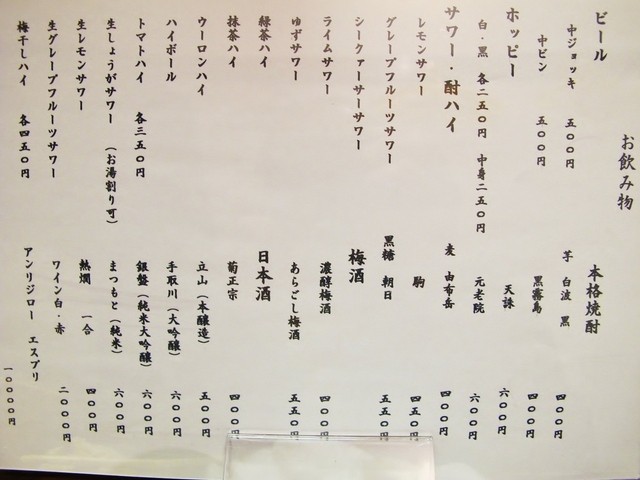 お飲み物
ビール
中ジョッキ 五〇〇円
中ビン 五〇〇円
ホッピー
白・黒 各二五〇円 中身二五〇円
サワー・酎ハイ
レモンサワー
グレープフルーツサワー
シークァーサーサワー
ライムサワー
ゆずサワー
緑茶ハイ
抹茶ハイ
ウーロンハイ
ハイボール
トマトハイ 各三五〇円
生しょうがサワー (お湯割り可)
生レモンサワー
生グレープフルーツサワー
梅干しハイ 各四五〇円
本格焼酎
芋 白波 黒 四〇〇円
黒霧島 四〇〇円
天誅 六〇〇円
元老院 六〇〇円
麦 由布岳 四〇〇円
駒 四五〇円
黒糖 朝日 五五〇円
梅酒
濃醇梅酒 四〇〇円
あらごし梅酒 五五〇円
日本酒
菊正宗 四〇〇円
立山(本醸造) 五〇〇円
手取川(大吟醸) 六〇〇円
銀盤(純米大吟醸) 六〇〇円
まつもと(純米) 六〇〇円
熱燗 一合 四〇〇円
ワイン白・赤 二〇〇〇円
アンリジロー エスプリ 一〇〇〇〇円